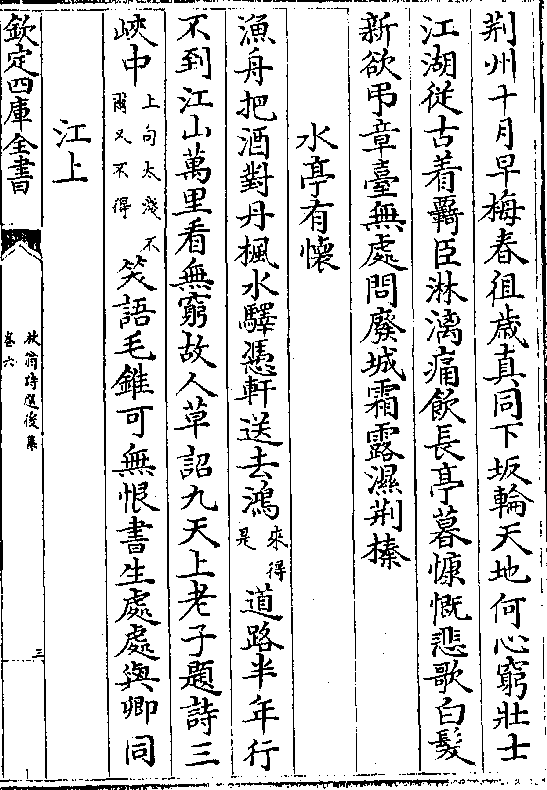 荆州十月早梅春徂歳真同下坂輪天地何心窮壯士
江湖從古着羇臣淋漓痛飲長亭暮慷慨悲歌白髪
新欲弔章臺無處問廢城霜露濕荆榛
水亭有懷
漁舟把酒對丹楓水驛憑軒送去鴻來得是道路半年行
不到江山萬里看無窮故人草詔九天上老子題詩三
峽中上句太淺不爾又不得笑語毛錐可無恨書生處處與卿同
江上
欽定四庫全書
放翁詩選後集
卷六
三